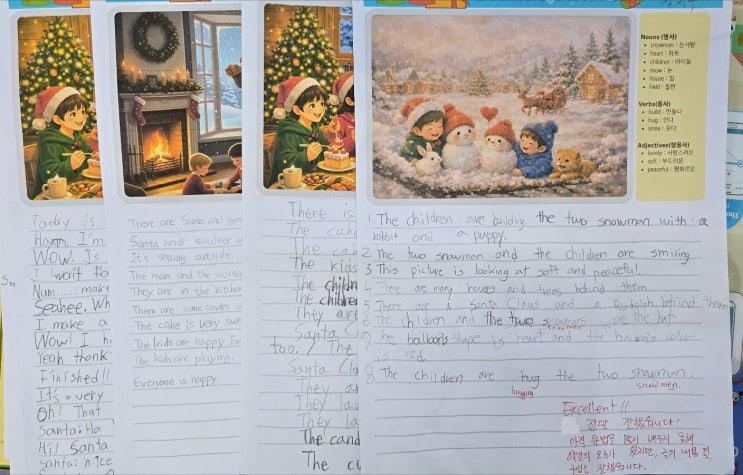 Today is
Hann. I'm
Wow! Is
I want to
Num.....make
Seahee, Wh
I make a
Wow! I h
Yeah thank
Finished!!
It's very
Oh! That
Santa: Ha
Hi! Santa
Santa: nice
There are Santa and reind
Santa and reindeer are
It's snowing outside.
The man and the woma
They are in the kitchen
There are some candles o
The cake is very swe
The kids are happy be
The kids are playing.
Everyone is happy.
There is
The cake
The cak
The kids
The childr
The childre
They are
Santa Cl
too. / The
Santa Cla
They a
They la
They
The cand
The c
Nouns (명사)
snowman : 눈사람
heart : 하트
children : 아이들
snow : 눈
house : 집
field : 들판
Verbs(동사)
build : 만들다
hug : 안다
smile : 웃다
Adjectives(형용사)
lovely : 사랑스러운
soft : 부드러운
peaceful : 평화로운
1 The children are building the two snowman with a
rabbit and a puppy.
2. The two snowman and the children are smiling
3 This picture is looking at soft and peaceful.
4 There are many houses and trees behind them
5 There are a Santa Claus and a Rudolph behind them
6 The children and the two snowmans are the hat
snowmen
7 The balloon's shape is heart and the balloon's color
is red.
8. The children are hug the two snowman.
hugging
snowmen.
Excellent!!
정말 잘했습니다!
아직 문법은 많이 배우지 못해
약간의 오류가 있지만, 글의 내용 및
구성은 잘했습니다.